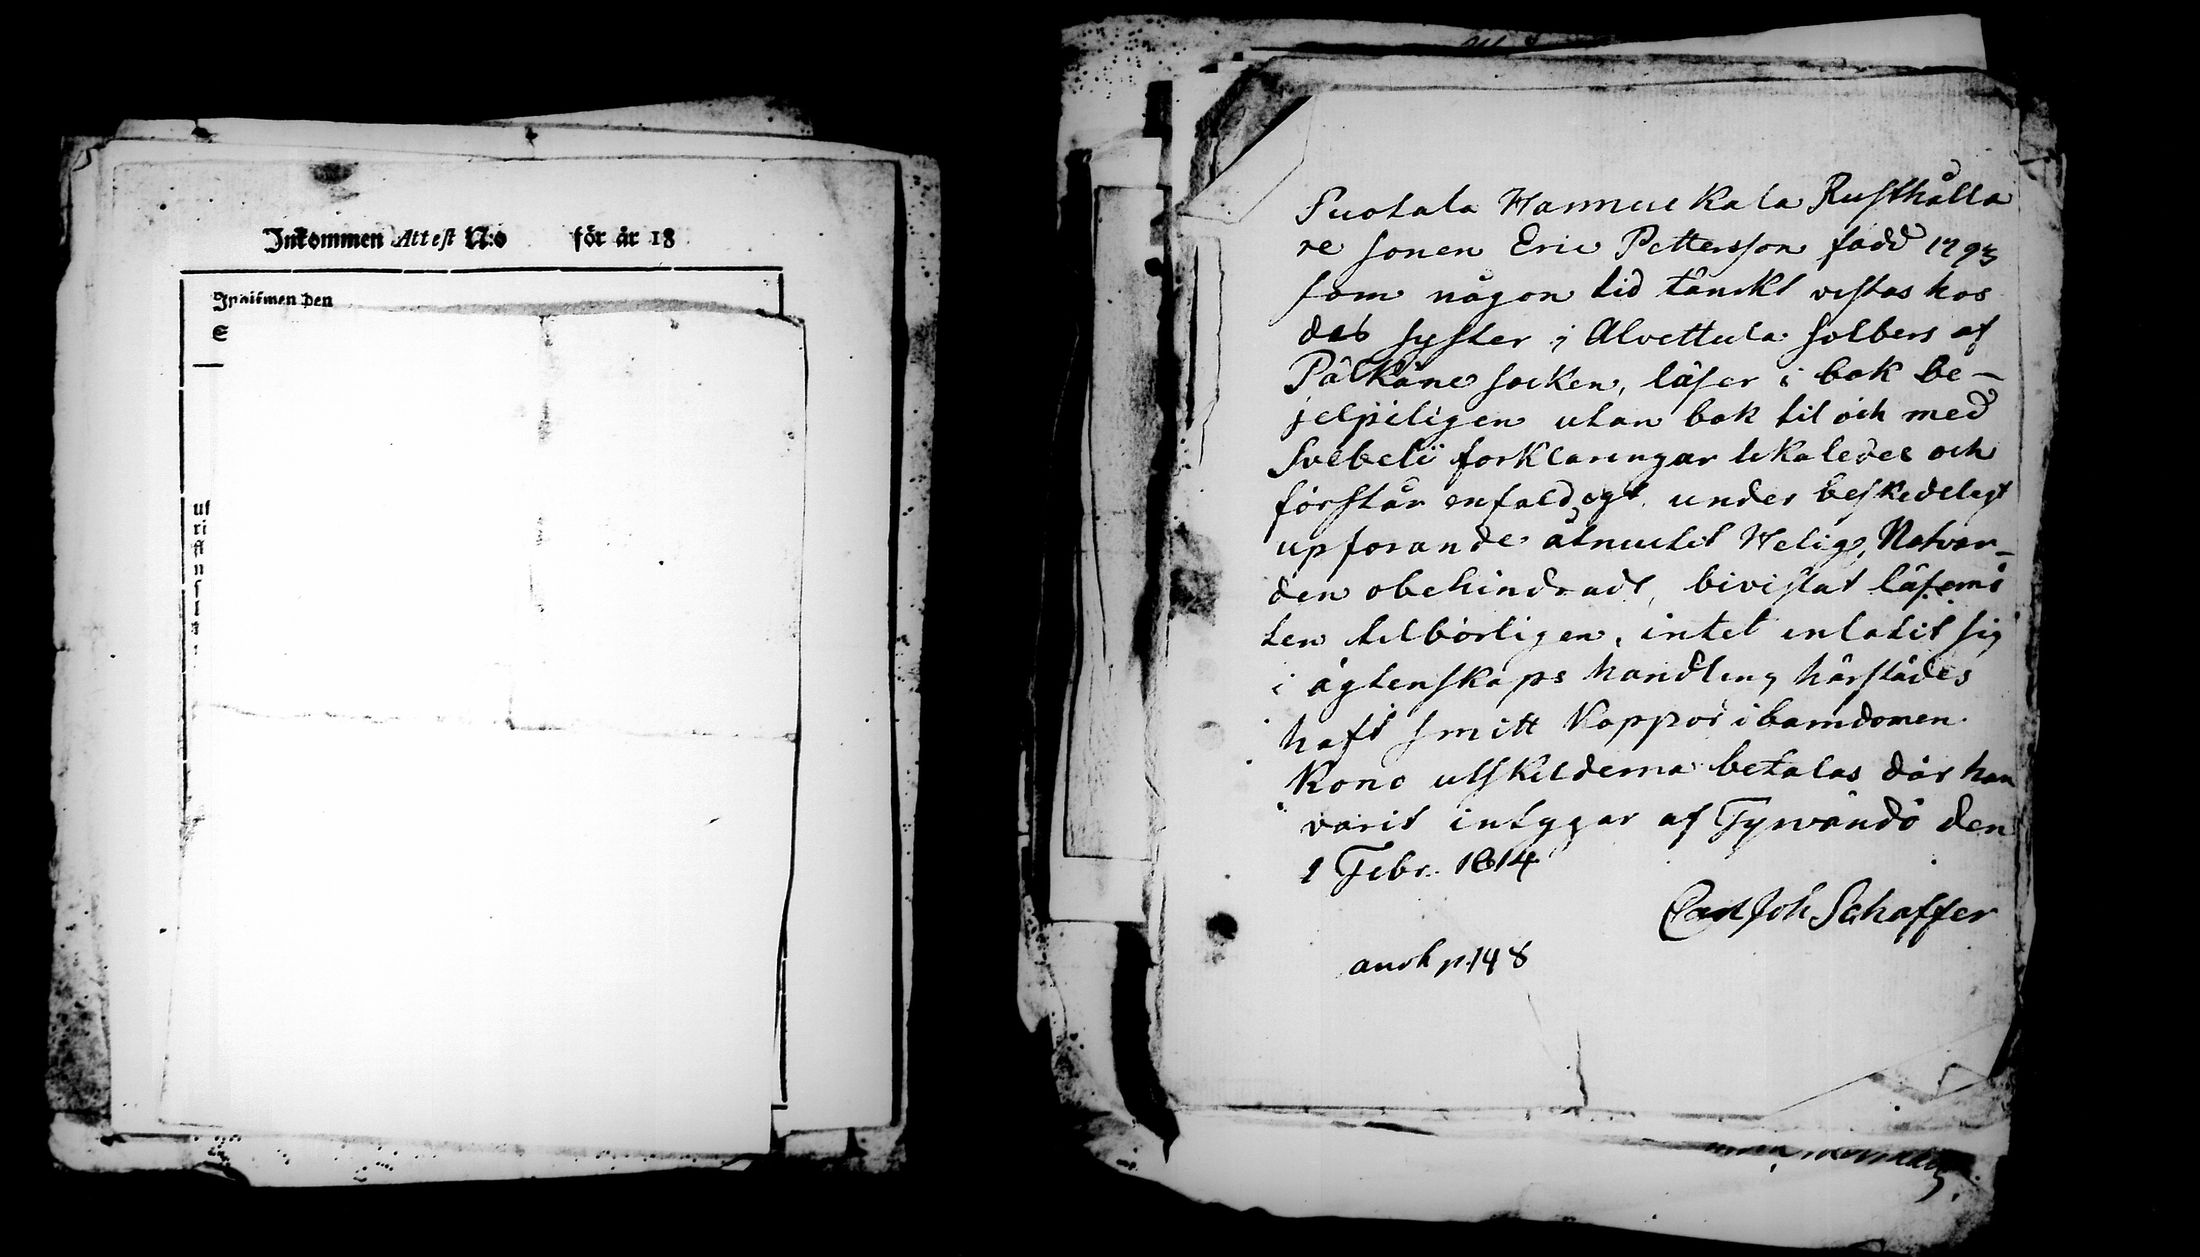 Inkommen Attest N:o för år 18
Inkommen den
E
ut
ri
st
n
s
l
Suotala Hannuukala Rusthålla
re sonen Eric Pettersson född 1793
som någon tid tänckt vistas hos
des syster i Alvettula Solbers af
Pälkäne socken, läser i bok be-
jelpeligen utan bok til och med
Svebelii forklaringar likaledes och
förstår enfaldigt, under beskedeligt
upförande åtnutit Helig, Natvar-
den obehindradt, bivistat läsemö
ten tilbörligen, intet inlatit sig
i ägtenskaps handling härstädes
haft smitt Koppor i barndomen.
Kono utskilderna betalas där han
varit intygar af Tyrvändö den
1 Febr. 1814
Carl Joh Schaffer
anok p.148